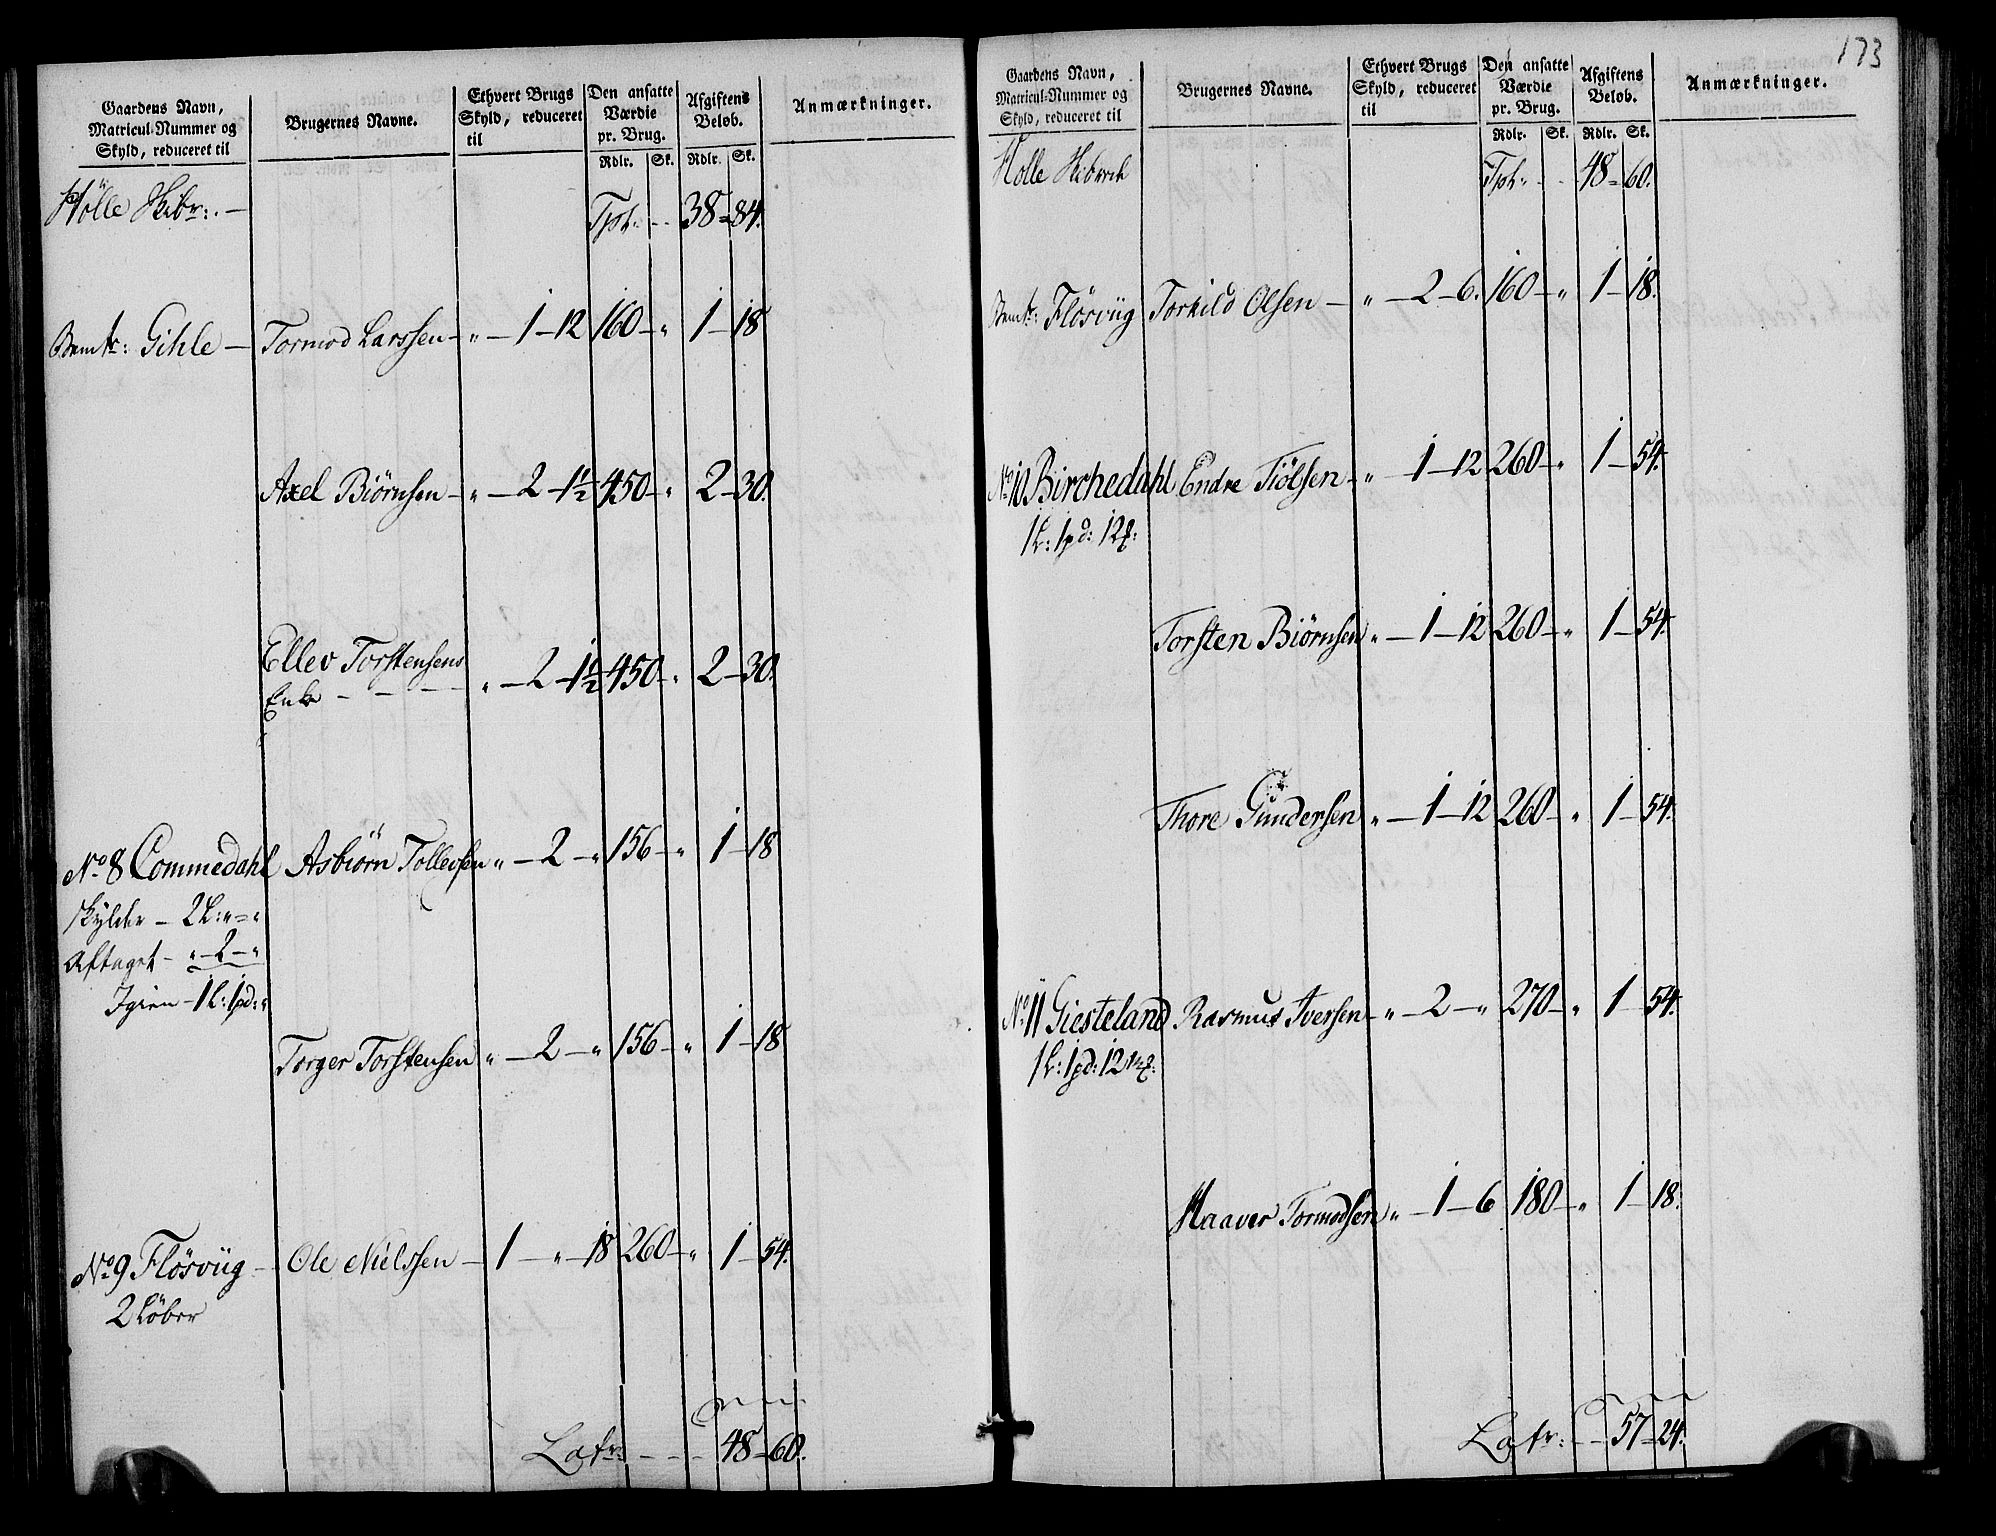 Gaardens Navn, Matricul-Nummer og Skyld, reduceret til
Brugernes Navne.
Ethvert Brugs Skyld, reduceret til
Den ansatte Værdie pr. Brug.
Afgiftens Beløb.
Anmærkninger.
Rdlr. Sk. Rdlr. Sk.
Hölle Skibr: — Tpt: -- 38 = 84.
Bemte: Gihle — Tormod Larssen — " — 1 — 12 160 — " 1 — 18
Axel Biörnsen — " — 2 — 1½ 450 — " 2 — 30.
Ellev Torstensens
Enke - - - - " — 2 — 1½ 450 — " 2 — 30.
No 8 Commedahl Asbiörn Tollevsen " — 2 — " 156 — " 1 — 18
skylder — 2 L: " = "
Aftaget — " — 2 — "
Igien — 1 L: 1 pd: "
Torger Torstensen " — 2 — " 156 — " 1 — 18
No 9 Flösvüg — Ole Nielssen — 1 — " — 18 260 — " 1 — 54.
2 Löber
Latr: - - - 48 — 60.
173
Gaardens Navn, Matricul-Nummer og Skyld, reduceret til
Brugernes Navne.
Ethvert Brugs Skyld, reduceret til
Den ansatte Værdie pr. Brug.
Afgiftens Beløb.
Anmærkninger.
Rdlr. Sk. Rdlr. Sk.
Holle Tpt: - - 48 = 60.
Bemte: Flösvüg Torkild Olsen — " — 2 — 6. 160 — " 1 — 18.
No 10 Birchedahl Endre Tiölsen — " — 1 — 12 260 — " 1 — 54.
1 L: 1 pd: 12
Torsten Biörnsen " — 1 — 12 260 — " 1 — 54.
Thore Gundersen " — 1 — 12 260 — " 1 — 54.
No 11 Giesteland Rasmus Iversen — " — 2 — " 270 — " 1 — 54.
1 L: 1 pd: 12
Haaver Tormodsen " — 1 — 6 180 — " 1 — 18.
Latr: - - 57 = 24.